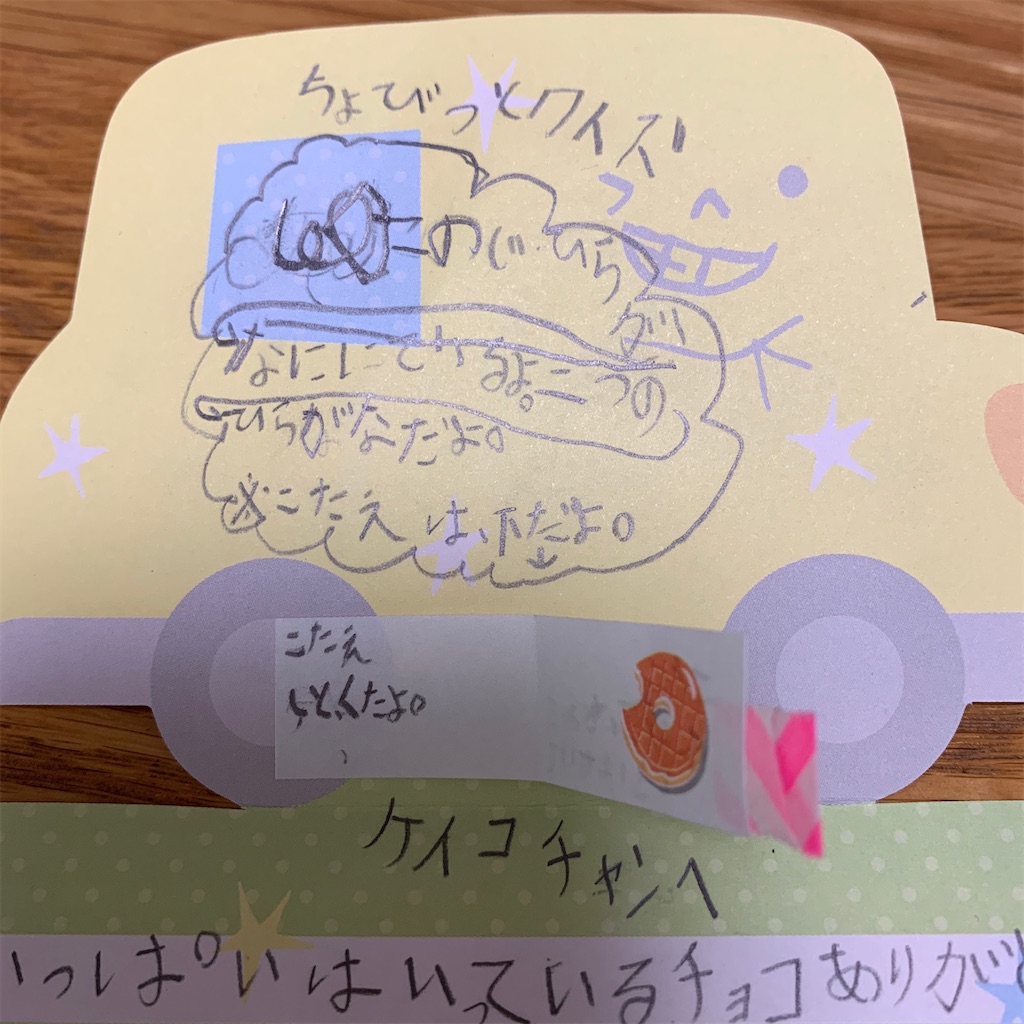 ちょびっとクイズ!
このじ ひら
がなにしにてわるよ。二つの
ひらがなだよ。
※こたえは、下だよ。
↓
こたえ
らとくだよ。
ケイコチャンへ
いっぱいはいっているチョコありがと